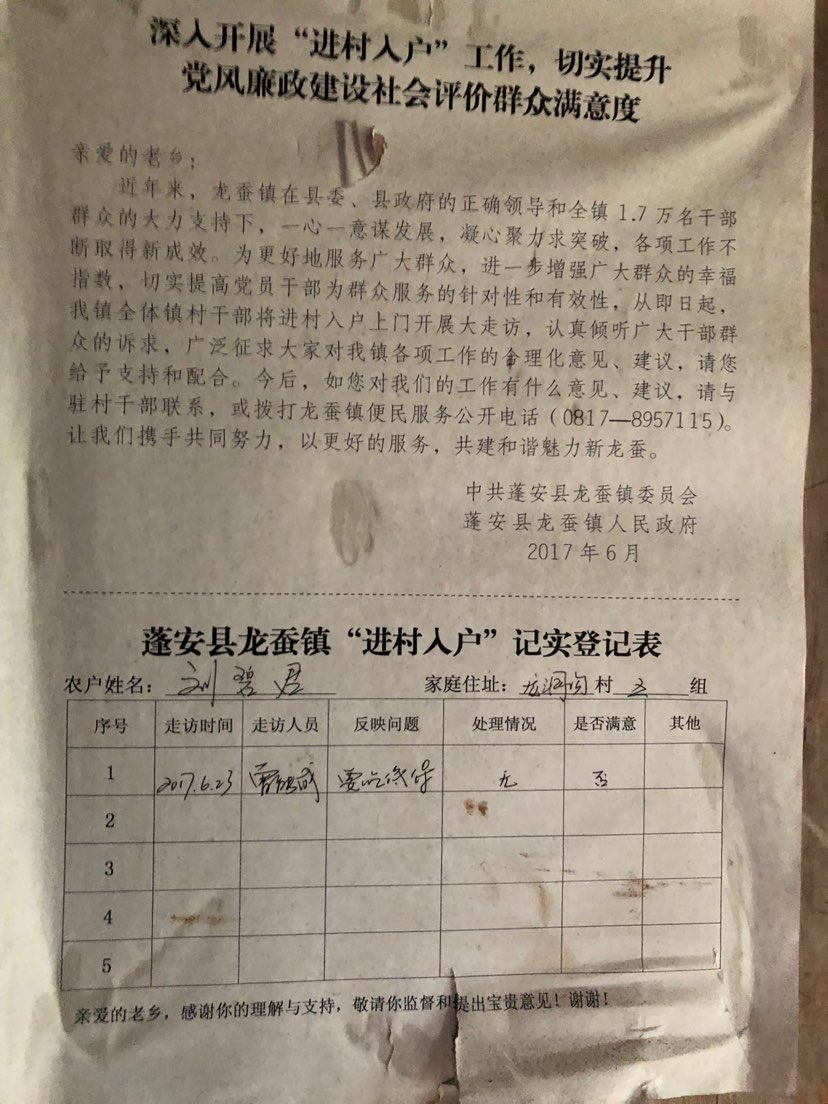 深入开展“进村入户”工作，切实提升
党风廉政建设社会评价群众满意度
亲爱的老乡：
近年来，龙蚕镇在县委、县政府的正确领导和全镇 1.7 万名干部
群众的大力支持下，一心一意谋发展，凝心聚力求突破，各项工作不
断取得新成效。为更好地服务广大群众，进一步增强广大群众的幸福
指数，切实提高党员干部为群众服务的针对性和有效性，从即日起，
我镇全体镇村干部将进村入户上门开展大走访，认真倾听广大干部群
众的诉求，广泛征求大家对我镇各项工作的合理化意见、建议，请您
给予支持和配合。今后，如您对我们的工作有什么意见、建议，请与
驻村干部联系，或拨打龙蚕镇便民服务公开电话（0817—8957115）。
让我们携手共同努力，以更好的服务，共建和谐魅力新龙蚕。
中共蓬安县龙蚕镇委员会
蓬安县龙蚕镇人民政府
2017 年 6 月
蓬安县龙蚕镇“进村入户”记实登记表
农户姓名：刘碧君 家庭住址：龙 村 五 组
序号 走访时间 走访人员 反映问题 处理情况 是否满意 其他
1 2017.6.23 要吃低保 无 否
2
3
4
5
亲爱的老乡，感谢你的理解与支持，敬请你监督和提出宝贵意见！谢谢！